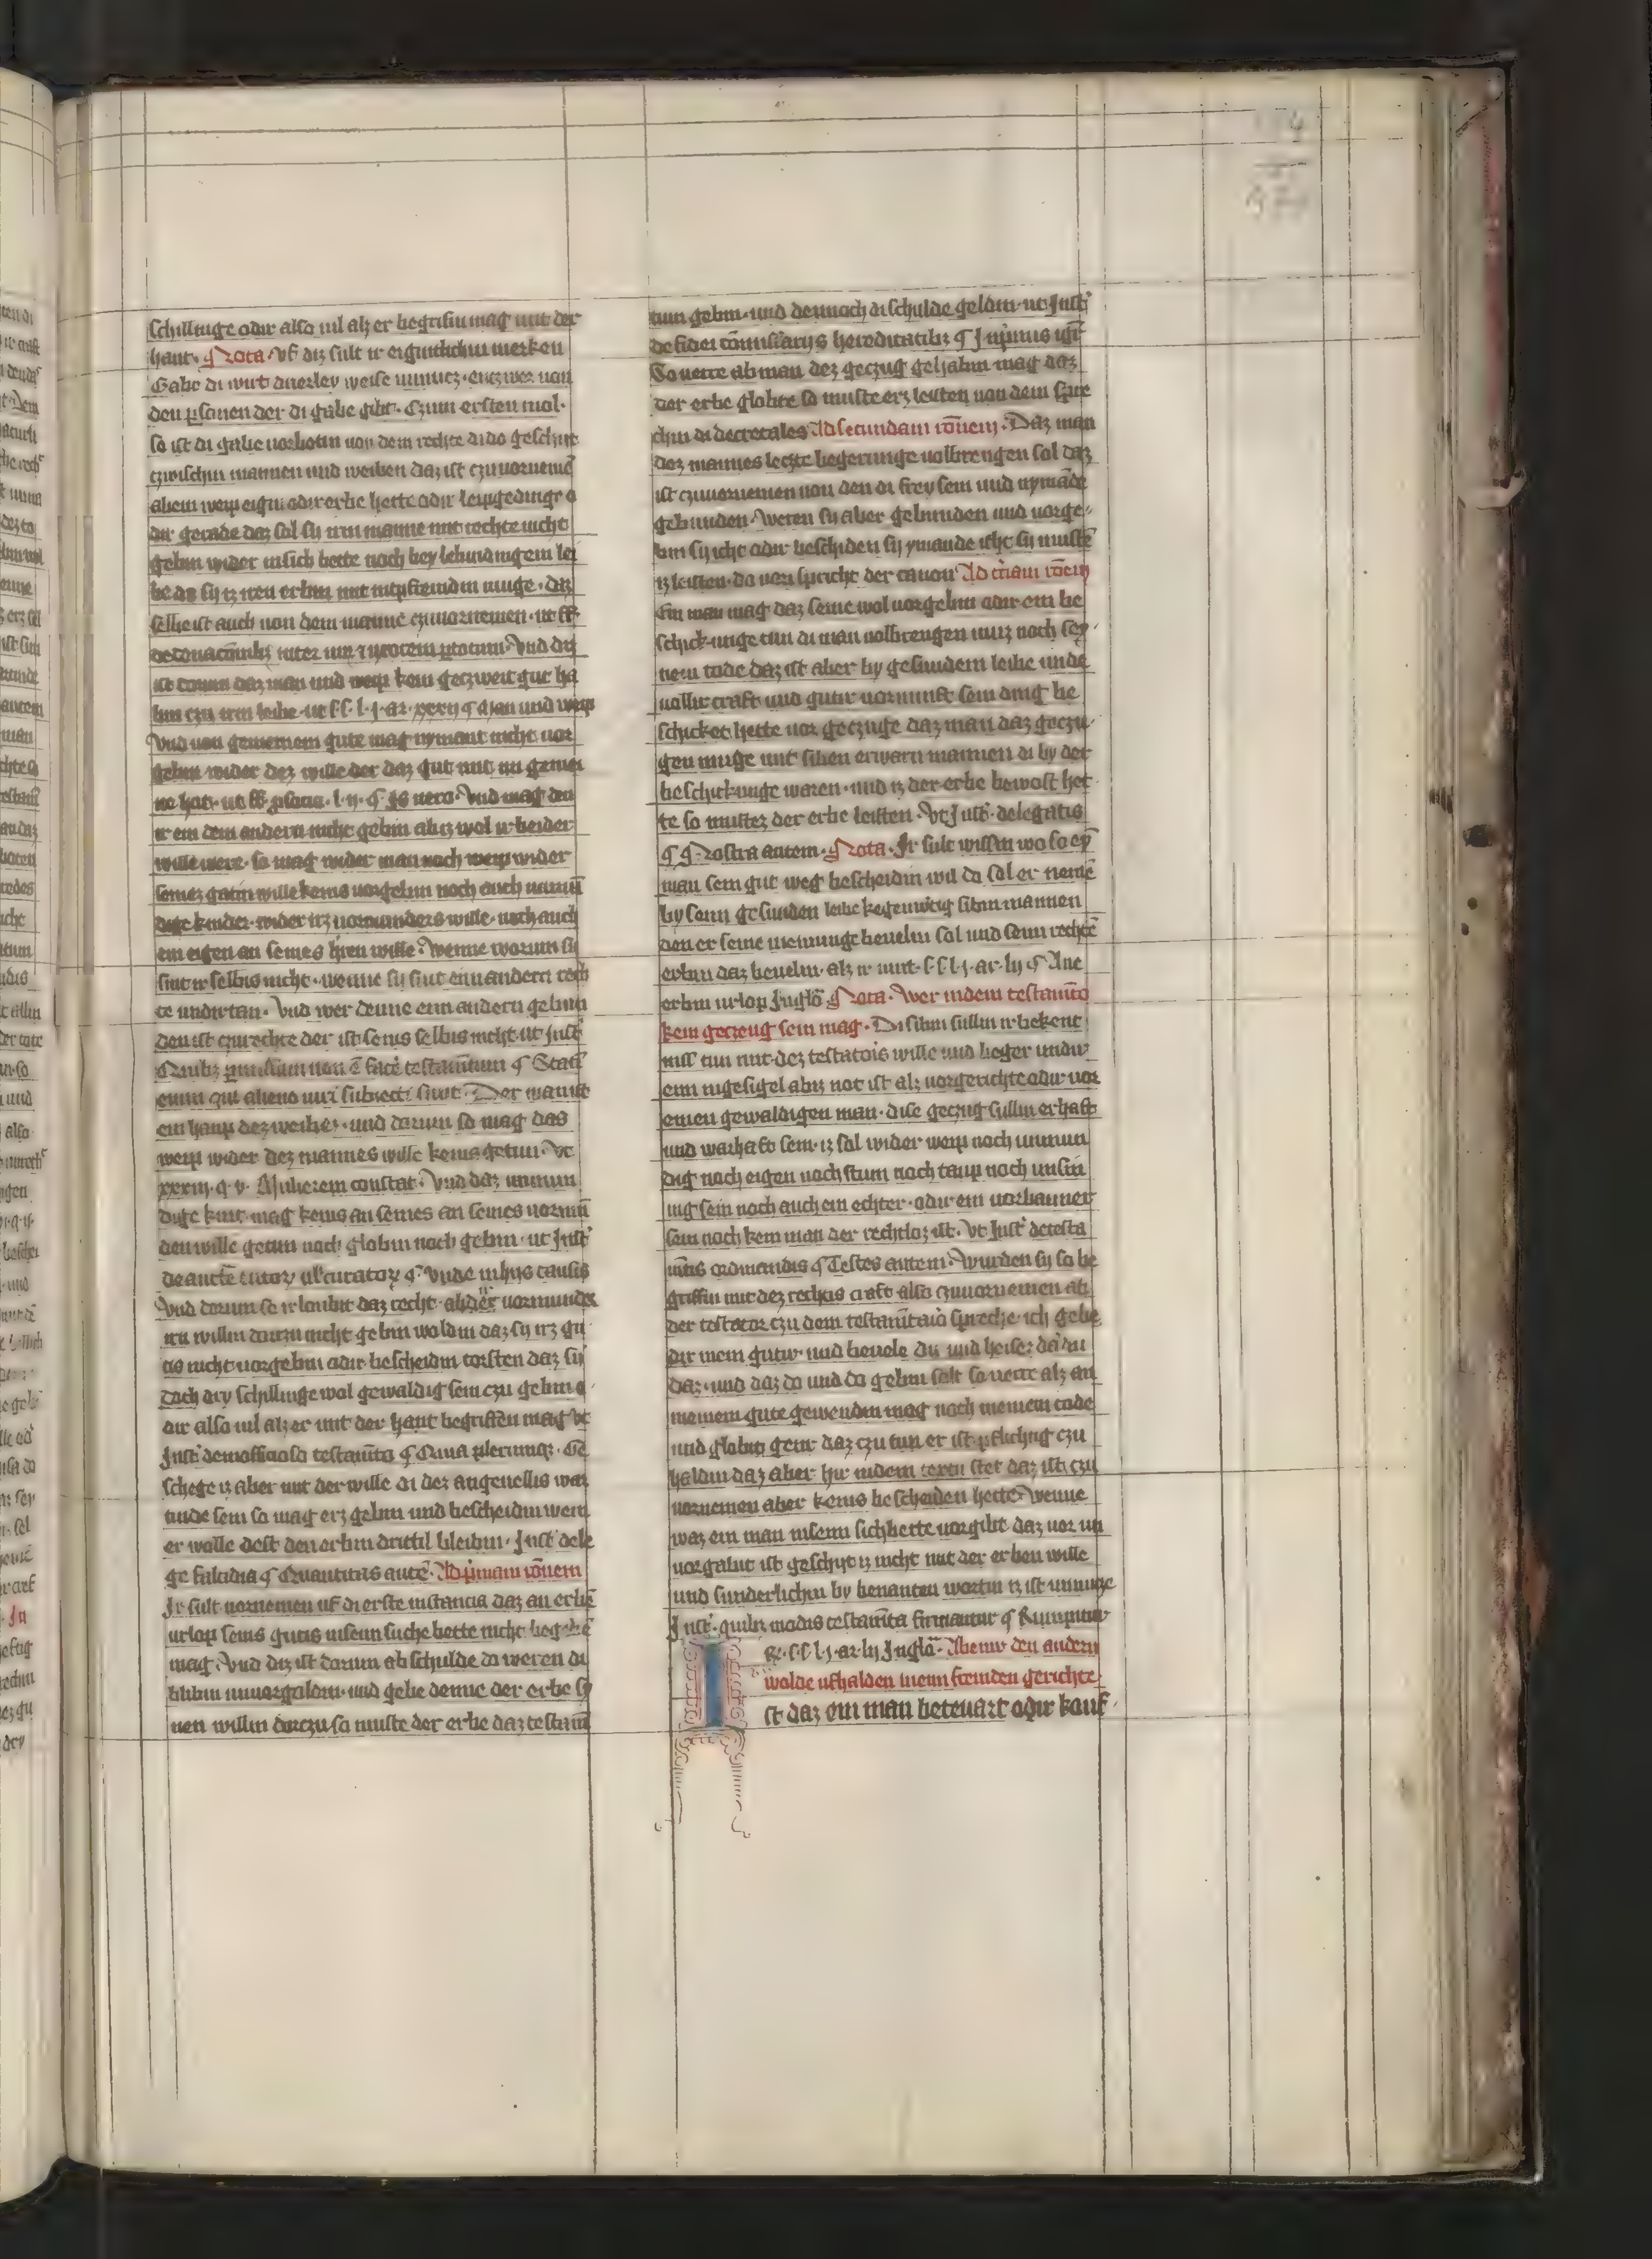 schillinge odir also uil alz er begrifin mag mit der
hant. Nota. Uf diz sult ir eigintlichin merken
Gabe di wirt dirleẏ weise unnutcz. entzwer von
den ꝑsonen der di gabe gibt. Czum ersten mol.
so ist di gabe vorbotin von dem rechte di do geschiet
czwischin mannen und weiben daz ist czuuornemē
ab ein weip eigin odir erbe hette odir leipgedinge o
dir gerade daz sal sy irm manne mit rechte nicht
gebin wider insich bette noch bey lebindingem lei
be do sy iz iren erbin mit mag. diz
selbe ist auch von dem manne czuuornemen. ut ff.
de donacōnibꝫ inter uir⁊ uxorem ꝑ totum. Und diz
ist dorum daz man und weip kein geczweit gut ha
bin czu irm leibe. ut s. l. j. ar. xxxij ¶ Man und weip
Und von gemeinem gute mag nymant nicht vor
gebin wider dez wille der daz gut mit im gemei
ne hat. ut ff. pro socio. l. ij. ¶ Is uero. Und mag den
ir ein dem andern nicht gebin abiz wol ir beider
wille were. so mag wider man noch weip wider
seines gatin wille keins vorgebin noch auch unmū
dige kinder. wider irz vormunders wille. noch auch
ein eigen an seines hēren wille. Wenne worum si
sint ir selbis nicht. wenne sy sint einandern rech
te undirtan. Und wer denne einandern gebun
den ist czurechte der ist seins selbis nicht. ut Inst̕
Quibꝫ ꝑmissum non ē facē testamētum ¶ Stati
enim qui alieno iuri subiecti sunt. Der man ist
ein haup dez weibes. und darum so mag das
weip wider dez mannes wille keins getun. Ut
xxxiij. q. v. Mulierem constat. Und daz unmun
dige kint mag keins an seines an seines vormū
den wille getun noch globin noch gebin. ut Inst̕
de auctē tutoꝝ uł curatoꝝ ¶ Unde in hijs causis
Und dorum so ir loubit daz recht. ab der vormunde
irn willin dorczu nicht gebin woldin daz sy irz gu
tis nicht vorgebin odir bescheidin torsten daz sy
doch dry schillinge wol gewaldig sein czu gebin o
dir also uil alz er mit der hant begriffen mag ut
Inst̕ de inofficioso testamēto ¶ Quia plerumqꝫ. Ge
schege iz aber mit der wille di dez angeuellis war
tinde sein so mag erz gebin und bescheidin wem
er wolle dest den erbin drittil bleibin. Inst̕ de le
ge falcidia ¶ Quantitas autē. Ad p̕mam rōnem
Ir sult uornemen uf di erste instancia daz an erbē
urlop seins gutis inseim suche bette nicht
mag. Und diz ist dorum ab schulde do weren di
blibin unuorgaldin. und gebe denne der erbe sy
nen willin dorczu so muste der erbe daz testamē
tum gebin. und dennoch di schulde geldin. ut Inst̕
de fidei cōmissarijs hereditatibꝫ ¶ Inp̕mis igi
So uerre ab man dez geczug gehabin mag daz
der erbe globte so muste erz leisten von dem spre
chin di decretales Ad secundam rōnem. Daz man
dez mannes leczte begerunge uolbrengen sal daz
ist czuuornemen von den di frey sein und nymāde
gebunden. Weren sy aber gebunden und vorge
bin sy icht odir beschiden sy ymande icht sy mustē
iz leisten. do von spricht der canon Ad t̕ciam rōem
Ein man mag daz seine wol vorgebin odir ein be
schickunge tun di man uolbrengen muz noch sey
nem tode daz ist aber by gesundem leibe unde
uollir craft und gutir vornunft sein ding be
schicket hette vor geczuge daz man daz geczu
gen muge mit siben erwarn mannen di by der
beschickunge waren. und iz der erbe bewost het
te so mustez der erbe leisten. Ut Inst̕. de legatis
¶ ¶ Nostra autem. Nota. Ir sult wissin wo so eȳ
man sein gut weg bescheidin wil do sal er nemē
by seim gesunden leibe kegenwertig sibin mannen
den er seine meinunge beuelin sal und sein rechtē
erbin daz beuelin. alz ir uint. s. l. j. ar. lij ¶ Ane
erbin urlop in glō Nota. Wer indem testamēto
kein geczeug sein mag. Di sibin sullin ir bekent
niss tun mit dez testatoris wille und beger undir
eim ingesigel abiz not ist alz vorgerichte odir vor
einen gewaldigen man. dise geczug sullin erhaft
und warhaft sein. iz sal wider weip noch unmun
dig noch eigen noch stum noch taup noch unsin
nig sein noch auch ein echter. odir ein vorbanner
sein noch kein man der rechtloz ist. Ut Inst̕ de testa
mētis ordinandis ¶ Testes autem. Wurden sy so be
griffin mit dez rechtis craft also czuuornemen ab
der testator czu dem testamētario spreche. ich gebe
dir mein gutir und beuele dir und heise daz du
daz. und daz do und do gebin salt so uerre alz an
meinem gute gewendin mag noch meinem tode
und globit genir daz czu tun er ist pflichtig czu
haldin daz aber hir indem textu stet daz ist czu
vornemen aber keins bescheiden hette. Wenne
waz ein man inseim sichbette vorgibt daz vor un
vorgabit ist geschyt iz nicht mit der erben wille
und sunderlichin by benanten wortin iz ist unnutze
Inst̕. quibꝫ modis testamēta firmantur ¶ Rumpitur
R. s. l. j. ar. lij In glō. Ab einir den andern
wolde ufhalden ineim fremden gerichte.
Ist daz ein man beteuart odir kouf